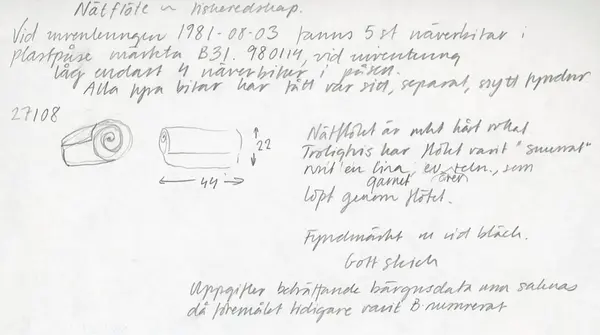 Nätflöte ur fiskeredskap.
Vid inventeringen 1981-08-03 fanns 5 st näverbitar i
plastpåse märkta B31. 980114, vid inventering
låg endast 4 näverbitar i påsen.
Alla fyra bitar har fått var sitt, separat, nytt fyndnr
27108
22
44
Nätflötet är mkt hårt rullat
Troligtvis har flötet varit "snurrat"
runt en lina, ev. teln., som
garnet
löpt genom flötet.
Fyndmärkt m vid bläck.
Gott skick
Uppgifter beträffande bärgnsdata mm saknas
då föremålet tidigare varit B-numrerat